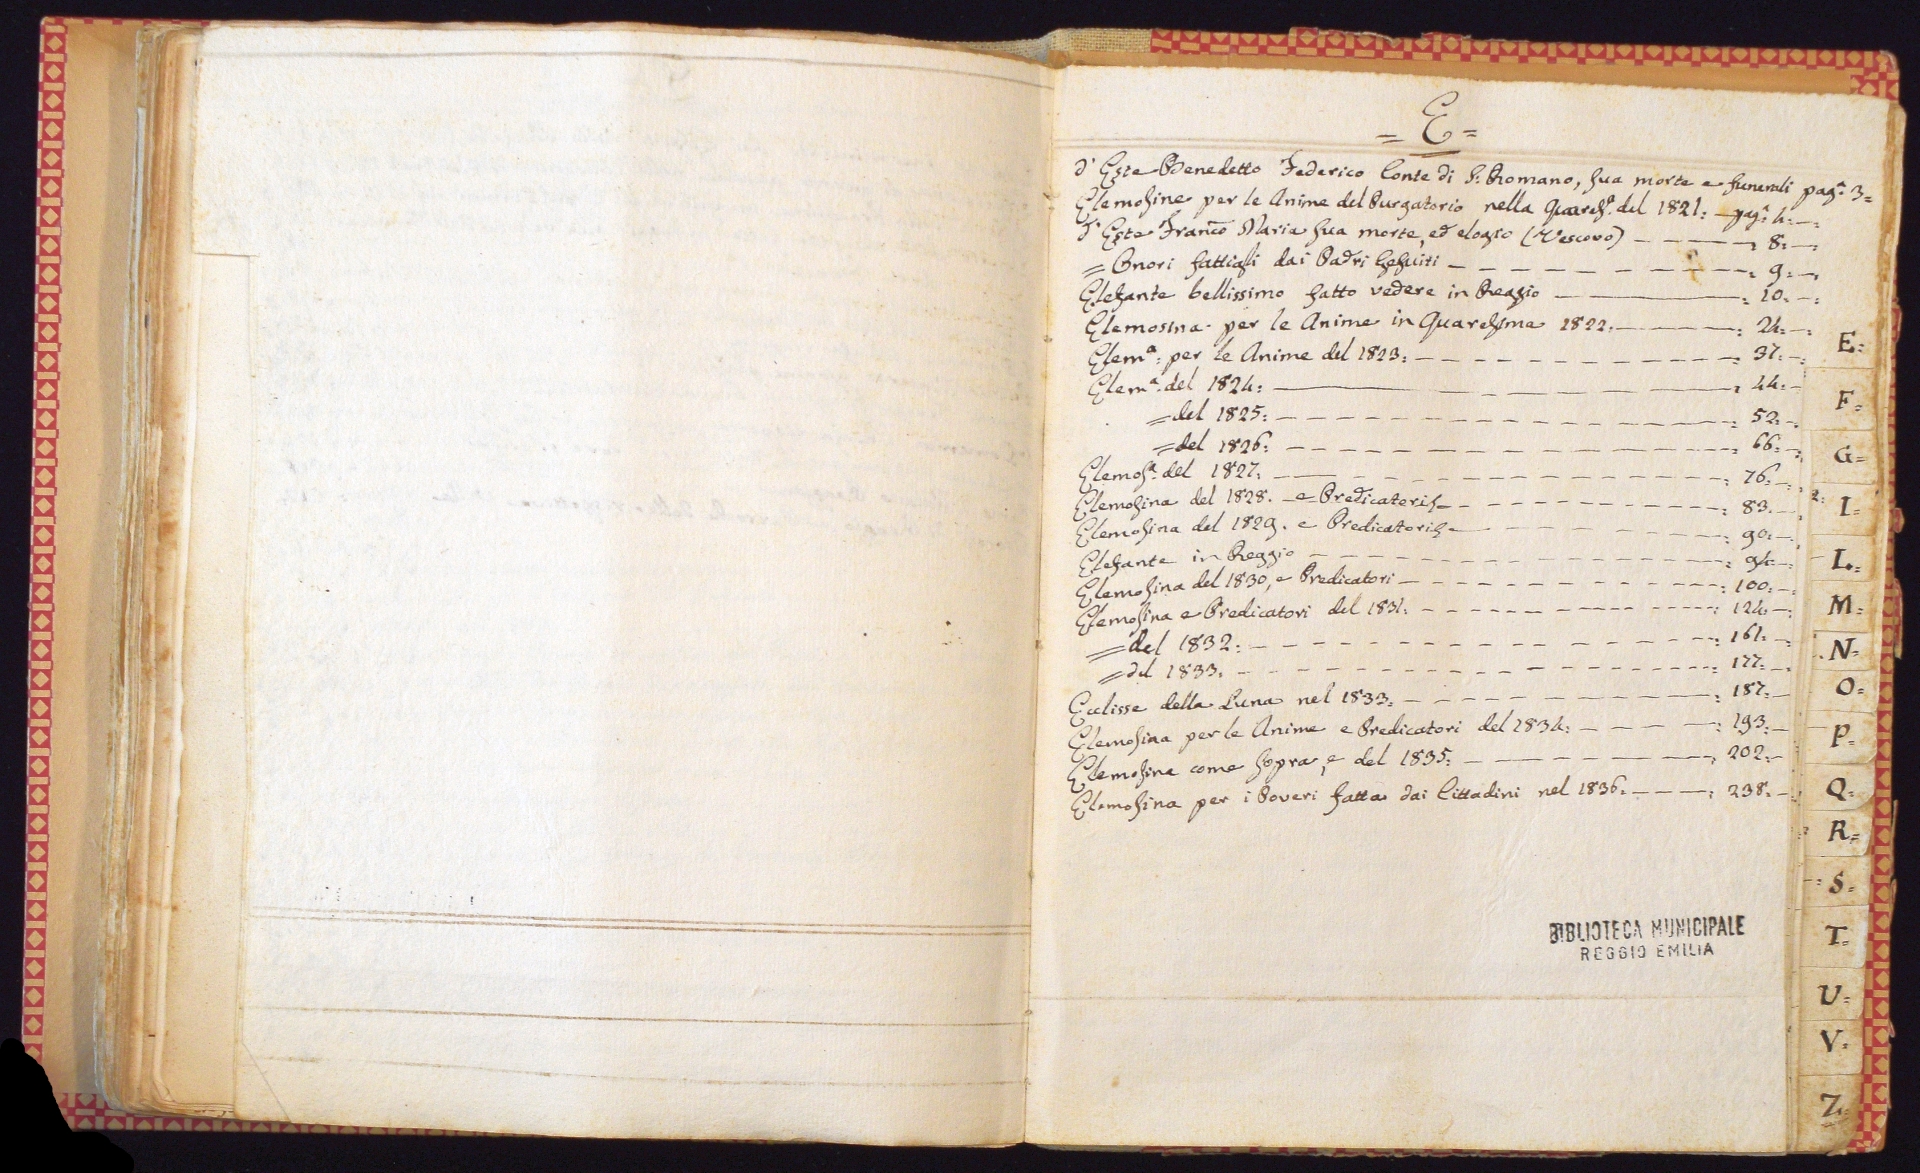 = E =
d' Este Benedetto Federico Conte di S. Romano, sua morte e funerali pag.ª 3=
Elemosine per le Anime del Purgatorio nella Quares.ª del 1821: pag.ª 4:
d' Este Franc.o Maria sua morte, ed elogio (Vescovo) 8:
= Onori fattigli dai Padri Gesuiti 9:
Elefante bellissimo fatto vedere in Reggio : 10.
Elemosina per le Anime in Quaresima 1822: : 24:
Elem.ª: per le Anime del 1823: : 37:
Elem.ª del 1824: : 44:
= del 1825: : 52:
= del 1826: : 66:
Elemos.ª del 1827: : 76:
Elemosina del 1828. e Predicatori : 83.
Elemosina del 1829. e Predicatori : 90:
Elefante in Reggio : 94:
Elemosina del 1830, e Predicatori : 100:
Elemosina e Predicatori del 1831: : 124:
= del 1832: : 161:
= del 1833. : 177:
Ecclisse della Luna nel 1833: : 187:
Elemosina per le Anime e Predicatori del 1834: : 193:
Elemosina come sopra, e del 1835: : 202:
Elemosina per i Poveri fatta dai Cittadini nel 1836: : 238:
BIBLIOTECA MUNICIPALE
REGGIO EMILIA
E=
F=
G=
I=
L=
M=
N=
O=
P=
Q=
R=
S=
T=
U=
V=
Z=